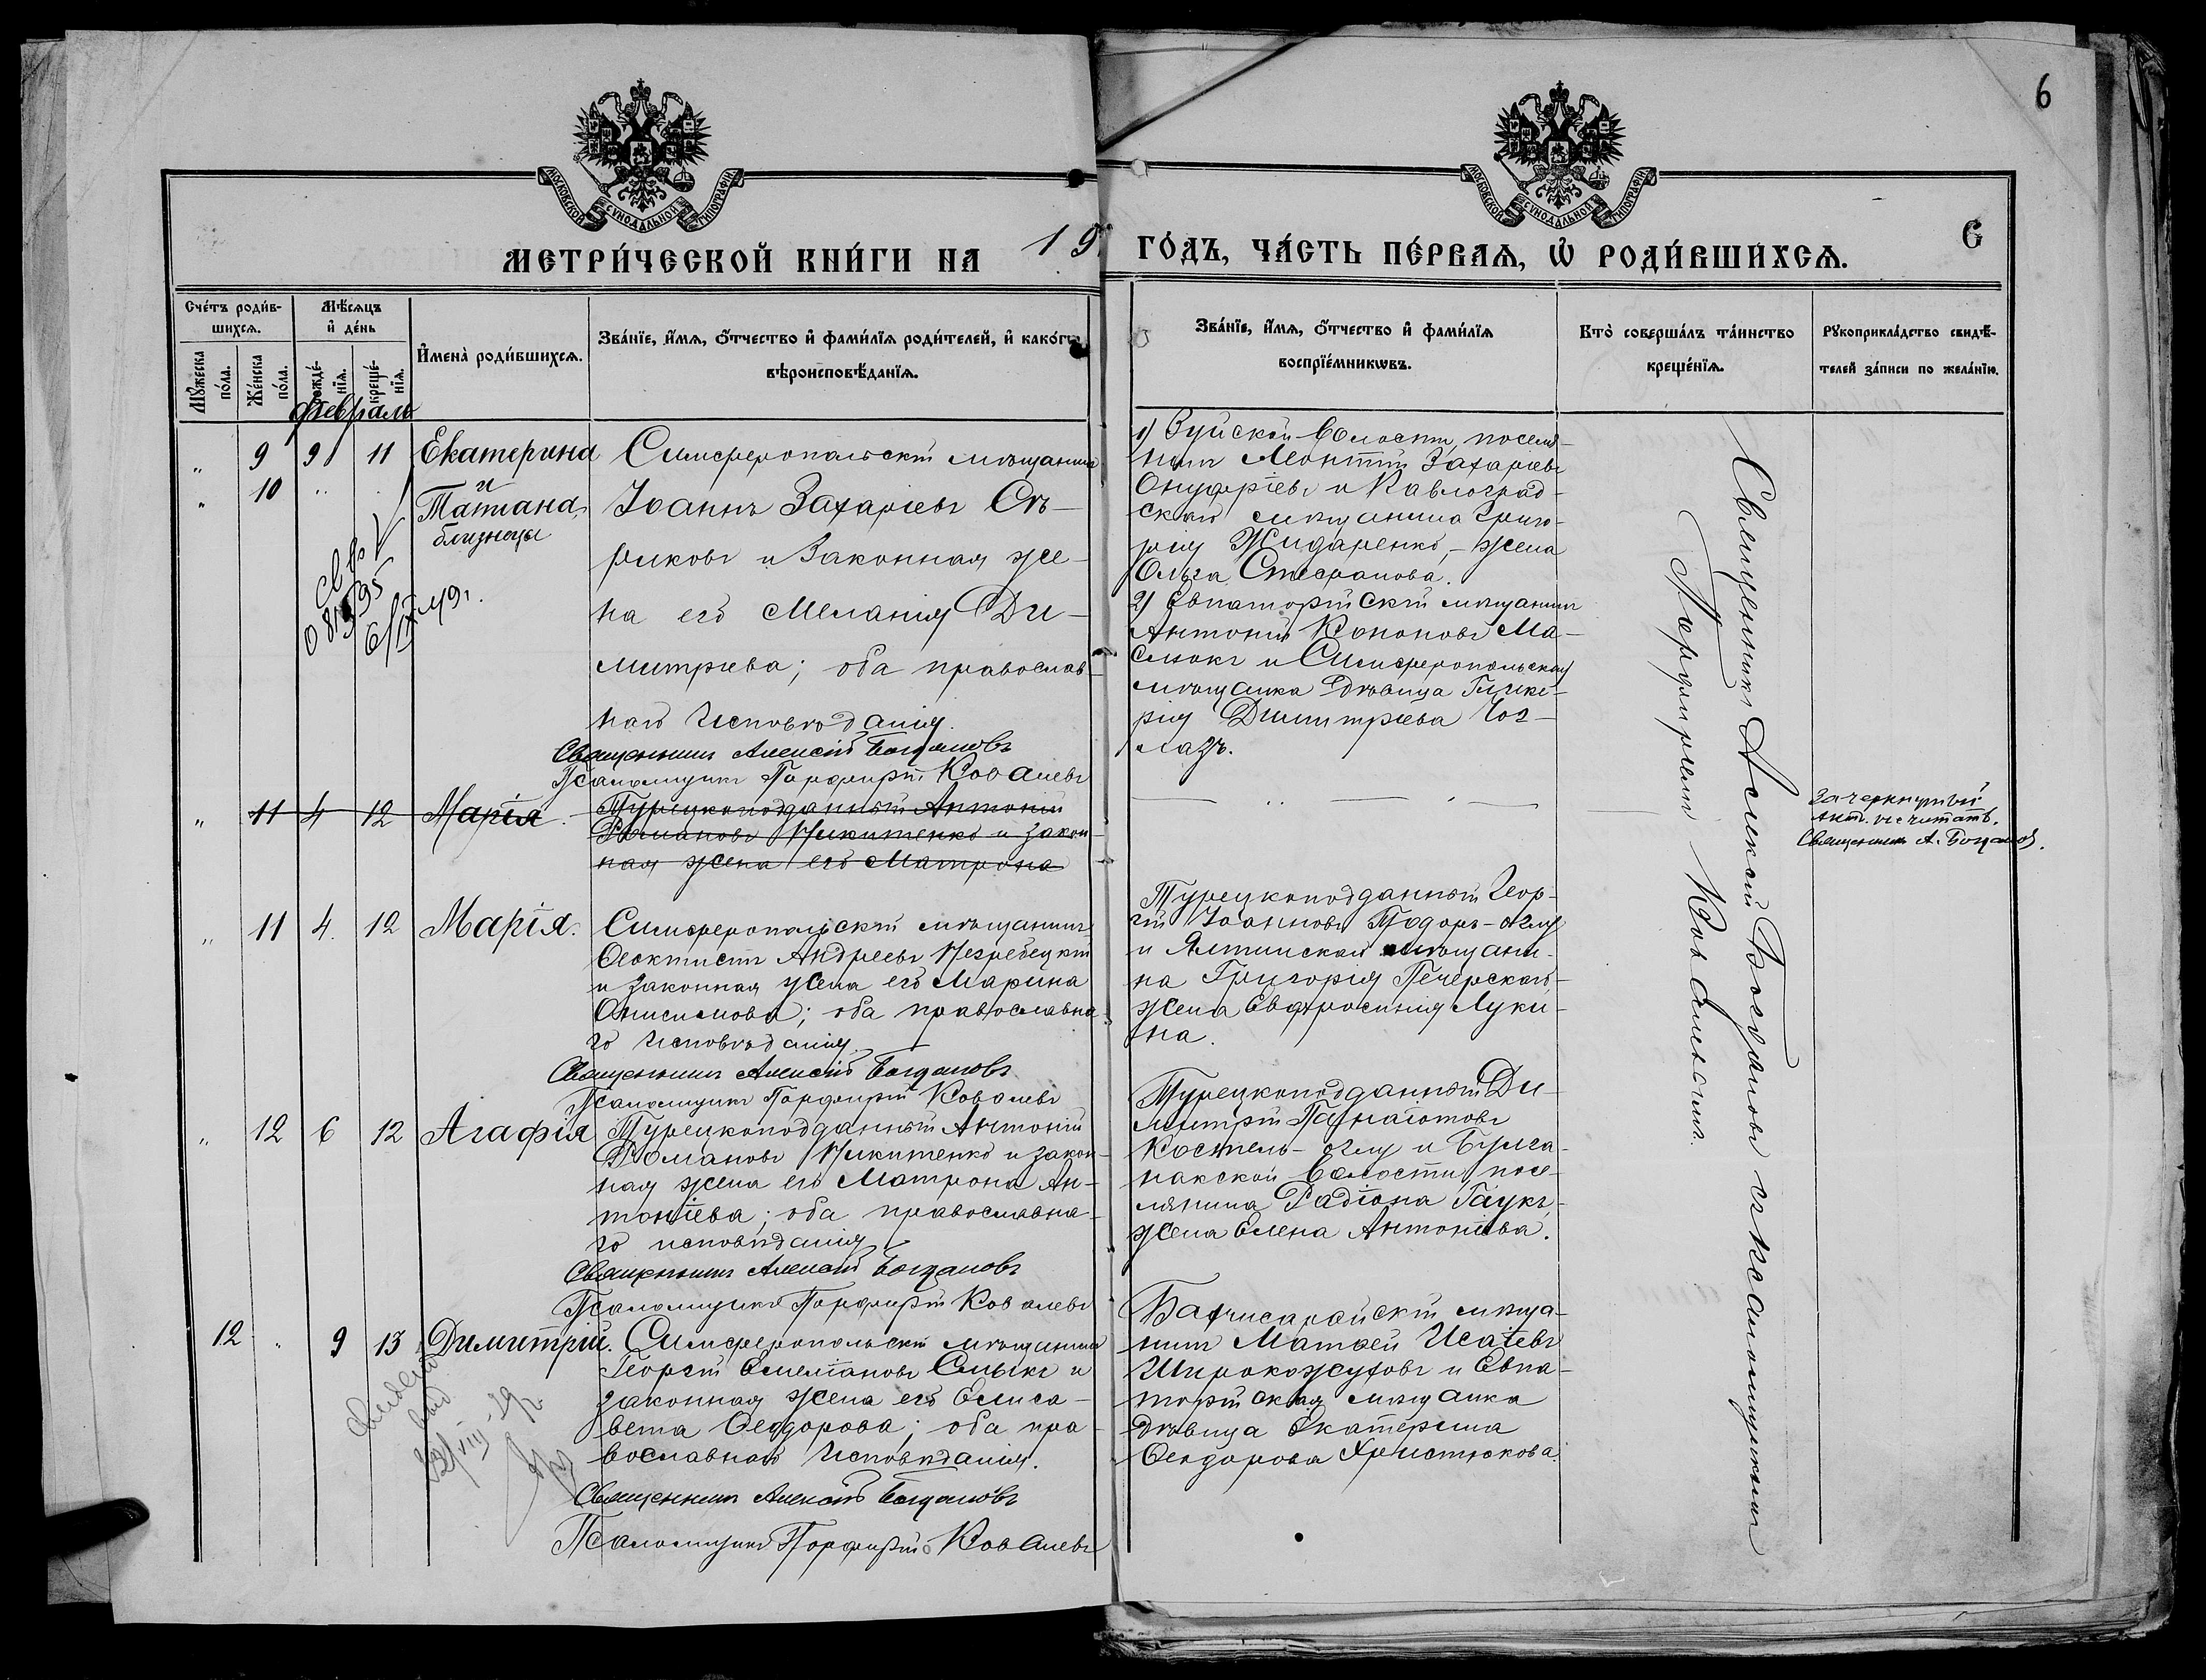 6
МОСКОВСКОЙ СѴНОДАЛЬНОЙ ТИПОГРАФІИ
МОСКОВСКОЙ СѴНОДАЛЬНОЙ ТИПОГРАФІИ
МЕТРИ́ЧЕСКОЙ КНИ́ГИ НА 19
ГО́ДЪ, ЧА́СТЬ ПЕ́РВАѦ, Ѡ҆ РОДИ́ВШИХСѦ.
6
Сче́тъ роди́в-
шихсѧ.
Мꙋ́жеска по́ла.
Же́нска по́ла.
Мѣ́сѧцъ
и҆ де́нь
рожде́-
нїѧ.
креще́-
нїѧ.
И҆мена̀ роди́вшихсѧ.
Зва́нїе, и҆́мѧ, ѻ҆́тчество и҆ фами́лїѧ роди́телей, и҆ како́гѡ
вѣроисповѣ́данїѧ.
Зва́нїе, и҆́мѧ, ѻ҆́тчество и҆ фами́лїѧ
воспрїе́мникѡвъ.
Кто̀ соверша́лъ та́инство
креще́нїѧ.
Рꙋкоприкла́дство свидѣ́-
телей за́писи по жела́нїю.
Февраль
„ 9 9 11 Екатерина
„ 10 и
Татіана,
близнецы
Симферопольскій мѣщанинъ
Іоаннъ Захаріевъ Съ-
риковъ и законная же-
на его Меланія Ди-
митріева; оба православ-
наго исповѣданія.
Священникъ Алексій Богдановъ
Псаломщикъ Порфирій Ковалевъ
1) Зуйской волости, поселя-
нинъ Леонтій Захаріевъ
Онуфріевъ и Павлоград-
скаго мѣщанина Григо-
рія Жидаренко, – жена
Ольга Стефанова.
2) Евпаторійскій мѣщанинъ
Антоній Кононовъ Ма-
слюкъ и Симферопольская
мѣщанка дѣвица Глике-
рія Димитріева Чог-
лазъ.
Священникъ Алексій Богдановъ съ псаломщикомъ
Порфиріемъ Ковалевымъ.
„ 11 4 12 Марія.
Турецкоподданный Антоній
Романовъ Никитенко и закон-
ная жена его Матрона
Зачеркнутый
актъ не читать.
Священникъ А. Богдановъ.
„ 11 4. 12 Марія.
Симферопольскій мѣщанинъ
Ѳеоктистъ Андреевъ Негребецкій
и законная жена его Марина
Онисимова; оба православна-
го исповѣданія.
Священникъ Алексій Богдановъ
Псаломщикъ Порфирій Ковалевъ
Турецкоподданный Геор-
гій Іоанновъ Тодоръ-оглу
и Ялтинскаго мѣщани-
на Григорія Печерскаго-
жена Евфросинія Луки-
на.
„ 12 6 12 Агафія
Турецкоподданный Антоній
Романовъ Никитенко и закон-
ная жена его Матрона Ан-
тоніева; оба православна-
го исповѣданія
Священникъ Алексій Богдановъ
Псаломщикъ Порфирій Ковалевъ
Турецкоподданный Ди-
митрій Панаіотовъ
Костель-оглу и Булга-
накской волости, посе-
лянина Радіона Гаукъ,
жена Елена Антоніева.
12 „ 9 13 Димитрій.
Симферопольскій мѣщанинъ
Георгій Емеліановъ Смыкъ и
законная жена его Елиса-
вета Ѳеодорова; оба пра-
вославнаго исповѣданія.
Священникъ Алексій Богдановъ
Псаломщикъ Порфирій Ковалевъ
Бахчисарайскій мѣща-
нинъ Матѳей Исаіевъ
Широкожуховъ и Евпа-
торійская мѣщанка
дѣвица Екатерина
Ѳеодорова Христюкова.